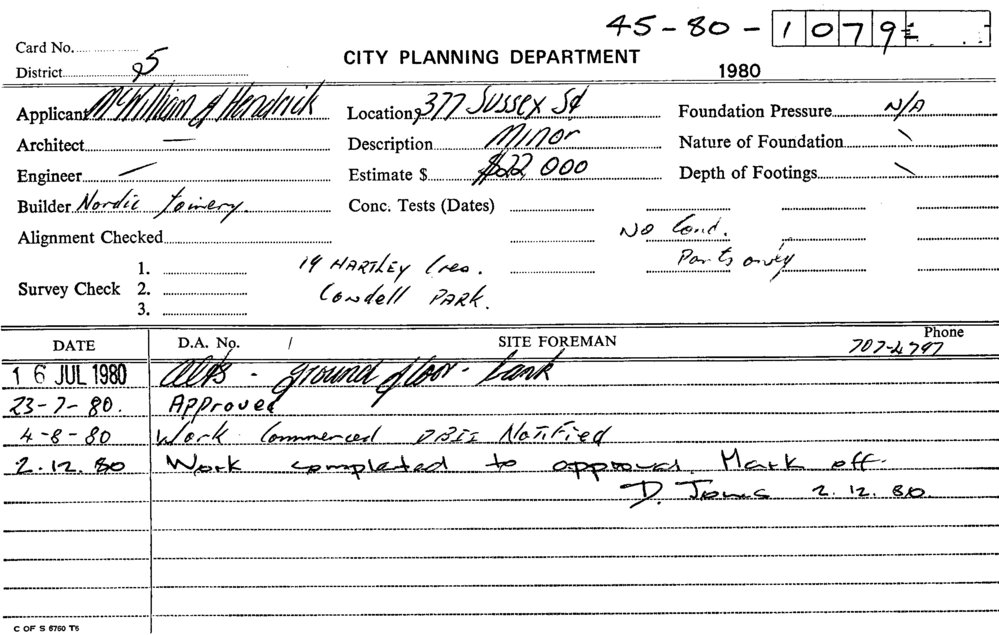 45-80-1079
Card No.
CITY PLANNING DEPARTMENT
District 5
1980
Applicant McWilliam & Hendrick
Location 377 Sussex St
Foundation Pressure N/A
Architect —
Description Minor
Nature of Foundation \
Engineer —
Estimate $ $22 000
Depth of Footings \
Builder Nordic Joinery.
Conc. Tests (Dates)
Alignment Checked
No Cond.
Survey Check
1.
2.
3.
19 HARTLEY Cres.
Condell PARK.
Parts only
DATE
D.A. No. /
SITE FOREMAN
Phone
707-4797
16 JUL 1980 Alts - ground floor - bank
23-7-80. Approved
4-8-80 Work Commenced DBII Notified
2.12.80 Work completed to approval. Mark off.
D. Jones 2.12.80.
C OF S 6760 T6